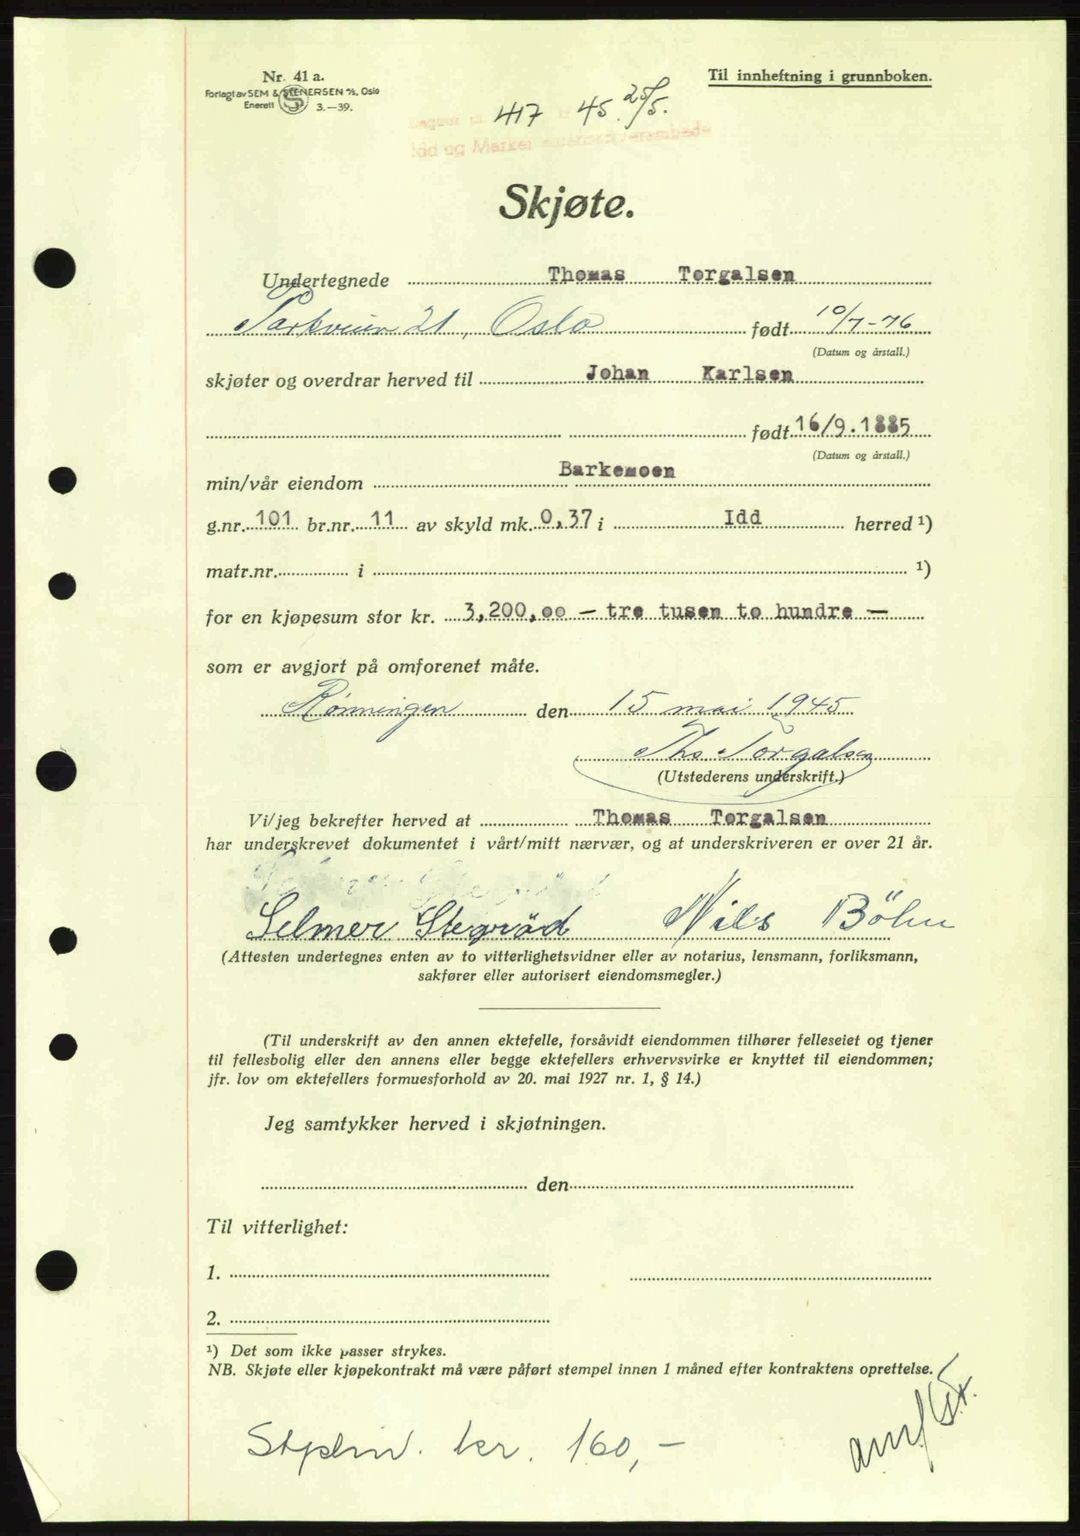 Nr. 41 a.
Forlagt av SEM & STENERSEN A/S, Oslo
Enerett 3.—39.
Til innheftning i grunnboken.
417 45. 25/5.
Idd og Marker
Skjøte.
Undertegnede Thomas Torgalsen
Parkveien 21, Oslo født 10/7-76
(Datum og årstall.)
skjøter og overdrar herved til Johan Karlsen
født 16/9.1885
(Datum og årstall.)
min/vår eiendom Barkemoen
g.nr. 101 br.nr. 11 av skyld mk. 0,37 i Idd herred ¹)
matr.nr. i ¹)
for en kjøpesum stor kr. 3,200,00 — tre tusen to hundre —
som er avgjort på omforenet måte.
Rønningen den 15 mai 1945
Ths Torgalsen
(Utstederens underskrift.)
Vi/jeg bekrefter herved at Thomas Torgalsen
har underskrevet dokumentet i vårt/mitt nærvær, og at underskriveren er over 21 år.
Selmer Stegröd Nils Böhn
(Attesten undertegnes enten av to vitterlighetsvidner eller av notarius, lensmann, forliksmann,
sakfører eller autorisert eiendomsmegler.)
(Til underskrift av den annen ektefelle, forsåvidt eiendommen tilhører felleseiet og tjener
til fellesbolig eller den annens eller begge ektefellers erhvervsvirke er knyttet til eiendommen;
jfr. lov om ektefellers formuesforhold av 20. mai 1927 nr. 1, § 14.)
Jeg samtykker herved i skjøtningen.
den
Til vitterlighet:
1.
2.
¹) Det som ikke passer strykes.
NB. Skjøte eller kjøpekontrakt må være påført stempel innen 1 måned efter kontraktens oprettelse.
kr. 160,-